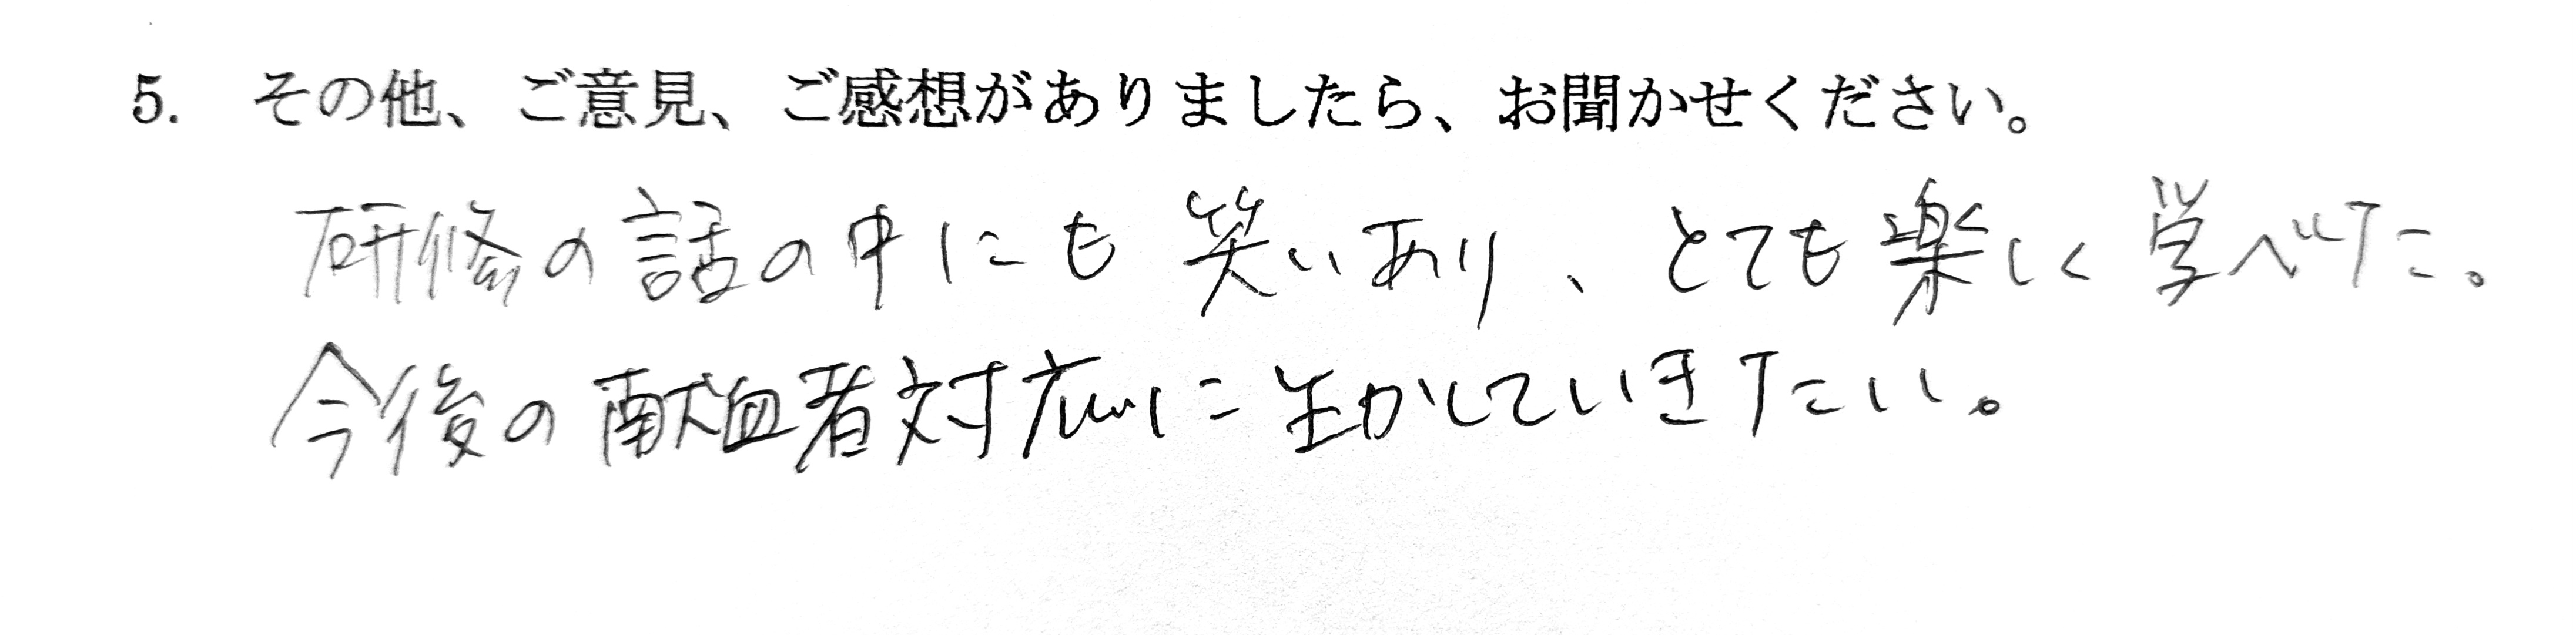 5. その他、ご意見、ご感想がありましたら、お聞かせください。
研修の話の中にも笑いあり、とても楽しく学べた。
今後の献血者対応に生かしていきたい。